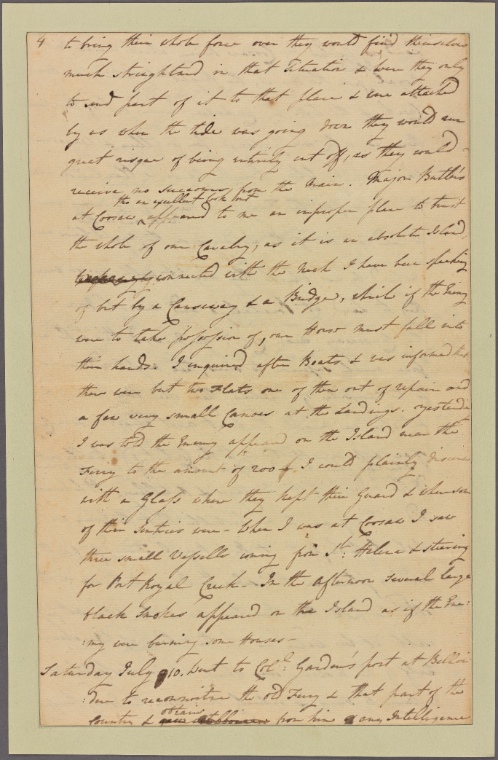 4 to bring their whole force over they would find themselves
much streightend in that Situation & were they only
to send part of it to that place & were attacked
by us when the tide was going down they would run
great risque of being entirely cut off, as they would
receive no succours from the Main. Major Butler's
tho an excellent look out
at Coosaw appeared to me an improper place to trust
the whole of our Cavalry, as it is an absolute Island
connected with the Neck I have been speaking
of but by a Causeway & a Bridge, which if the Enemy
were to take possession of, our Horse must fall into
their hands. I enquired after Boats & was informed that
there were but two Flats one of them out of repair and
a few very small Canoes at the Landings. yesterday
I was told the Enemy appeared on the Island near the
Ferry to the amount of 200 & I could plainly discern
with a Glass where they kept their Guard & where some
of their Sentries were - When I was at Coosaw I saw
three small Vessells coming from St. Helena & steering
for Port Royal Creek. In the afternoon several large
black Smokes appeared on the Island as if the Ene:
:my were burning some Houses -
Saturday July 10. Went to Colo. Garden's post at Bellin
:den to reconnoitre the old Ferry & that part of the
obtain
Country & from him any Intelligence